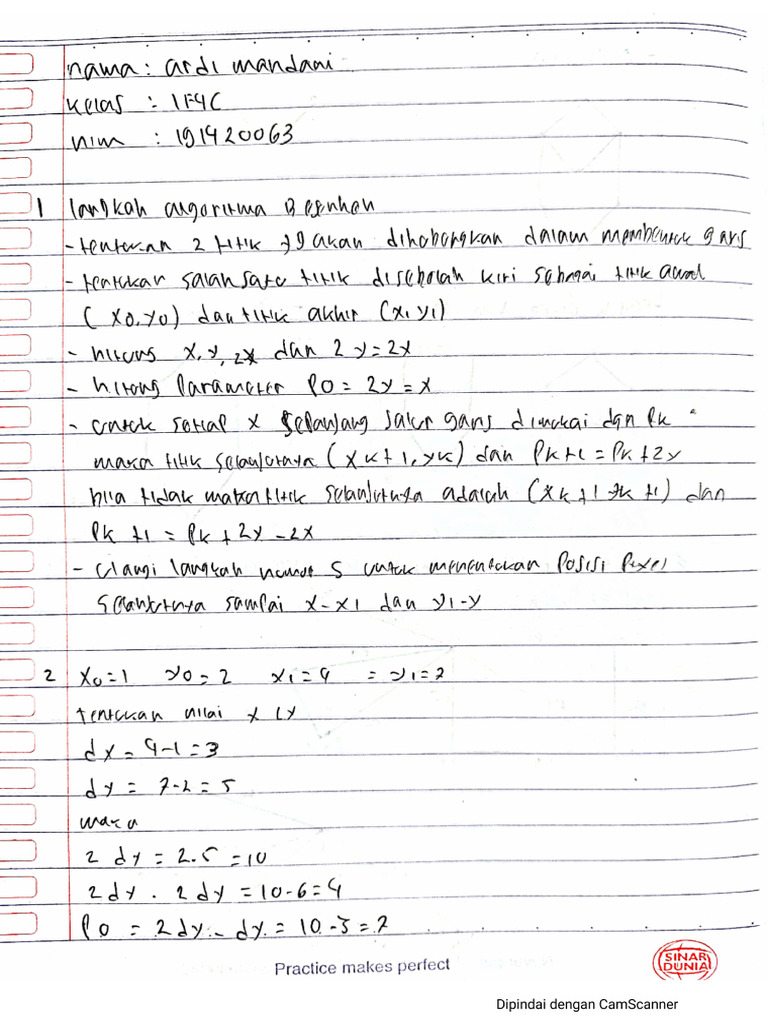 nama : ardi mandani
kelas : IF4C
nim : 191420063
1 langkah algoritma Besenhen
- tentukan 2 titik yg akan dihubungkan dalam membentuk garis
- tentukan salah satu titik disebelah kiri sebagai titik awal
(x0, y0) dan titik akhir (x1 y1)
- hitung x, y, 2x dan 2y = 2x
- hitung Parameter P0 = 2y = x
- untuk setiap x sepanjang jalur garis dimulai dgn Pk
maka titik selanjutnya (xk+1, yk) dan Pk+1 = Pk + 2y
bila tidak maka titik selanjutnya adalah (xk+1 yk+1) dan
Pk+1 = Pk + 2y - 2x
- ulangi langkah nomor 5 untuk menentukan Posisi Pixel
selanjutnya sampai x-x1 dan y1-y
2 x0=1 y0=2 x1=4 = y1=7
tentukan nilai x Ly
dx = 4-1 = 3
dy = 7-2 = 5
maka
2 dy = 2.5 = 10
2dy . 2dy = 10-6 = 4
P0 = 2dy - dy = 10-3 = 7
Practice makes perfect
SINAR
DUNIA
Dipindai dengan CamScanner